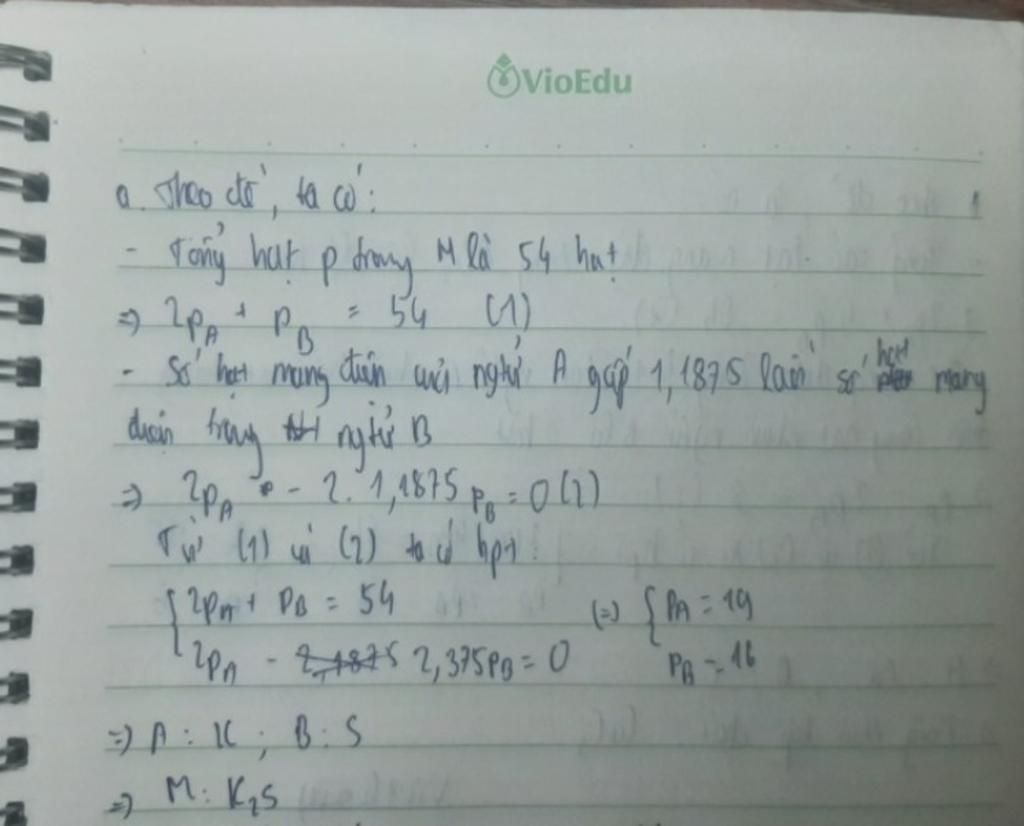 VioEdu
a. Theo đề, ta có:
- Tổng hạt p trong M là 54 hạt
=> 2pA + pB = 54 (1)
- Số hạt mang điện của ngtử A gấp 1,1875 lần số hạt mang
điện trong ngtử B
=> 2pA - 2. 1,1875 pB = 0 (2)
Từ (1) và (2) ta có hpt:
{ 2pA + pB = 54 (=) { pA = 19
2pA - 2,375pB = 0 pB = 16
=) A : K ; B : S
=) M : K2S